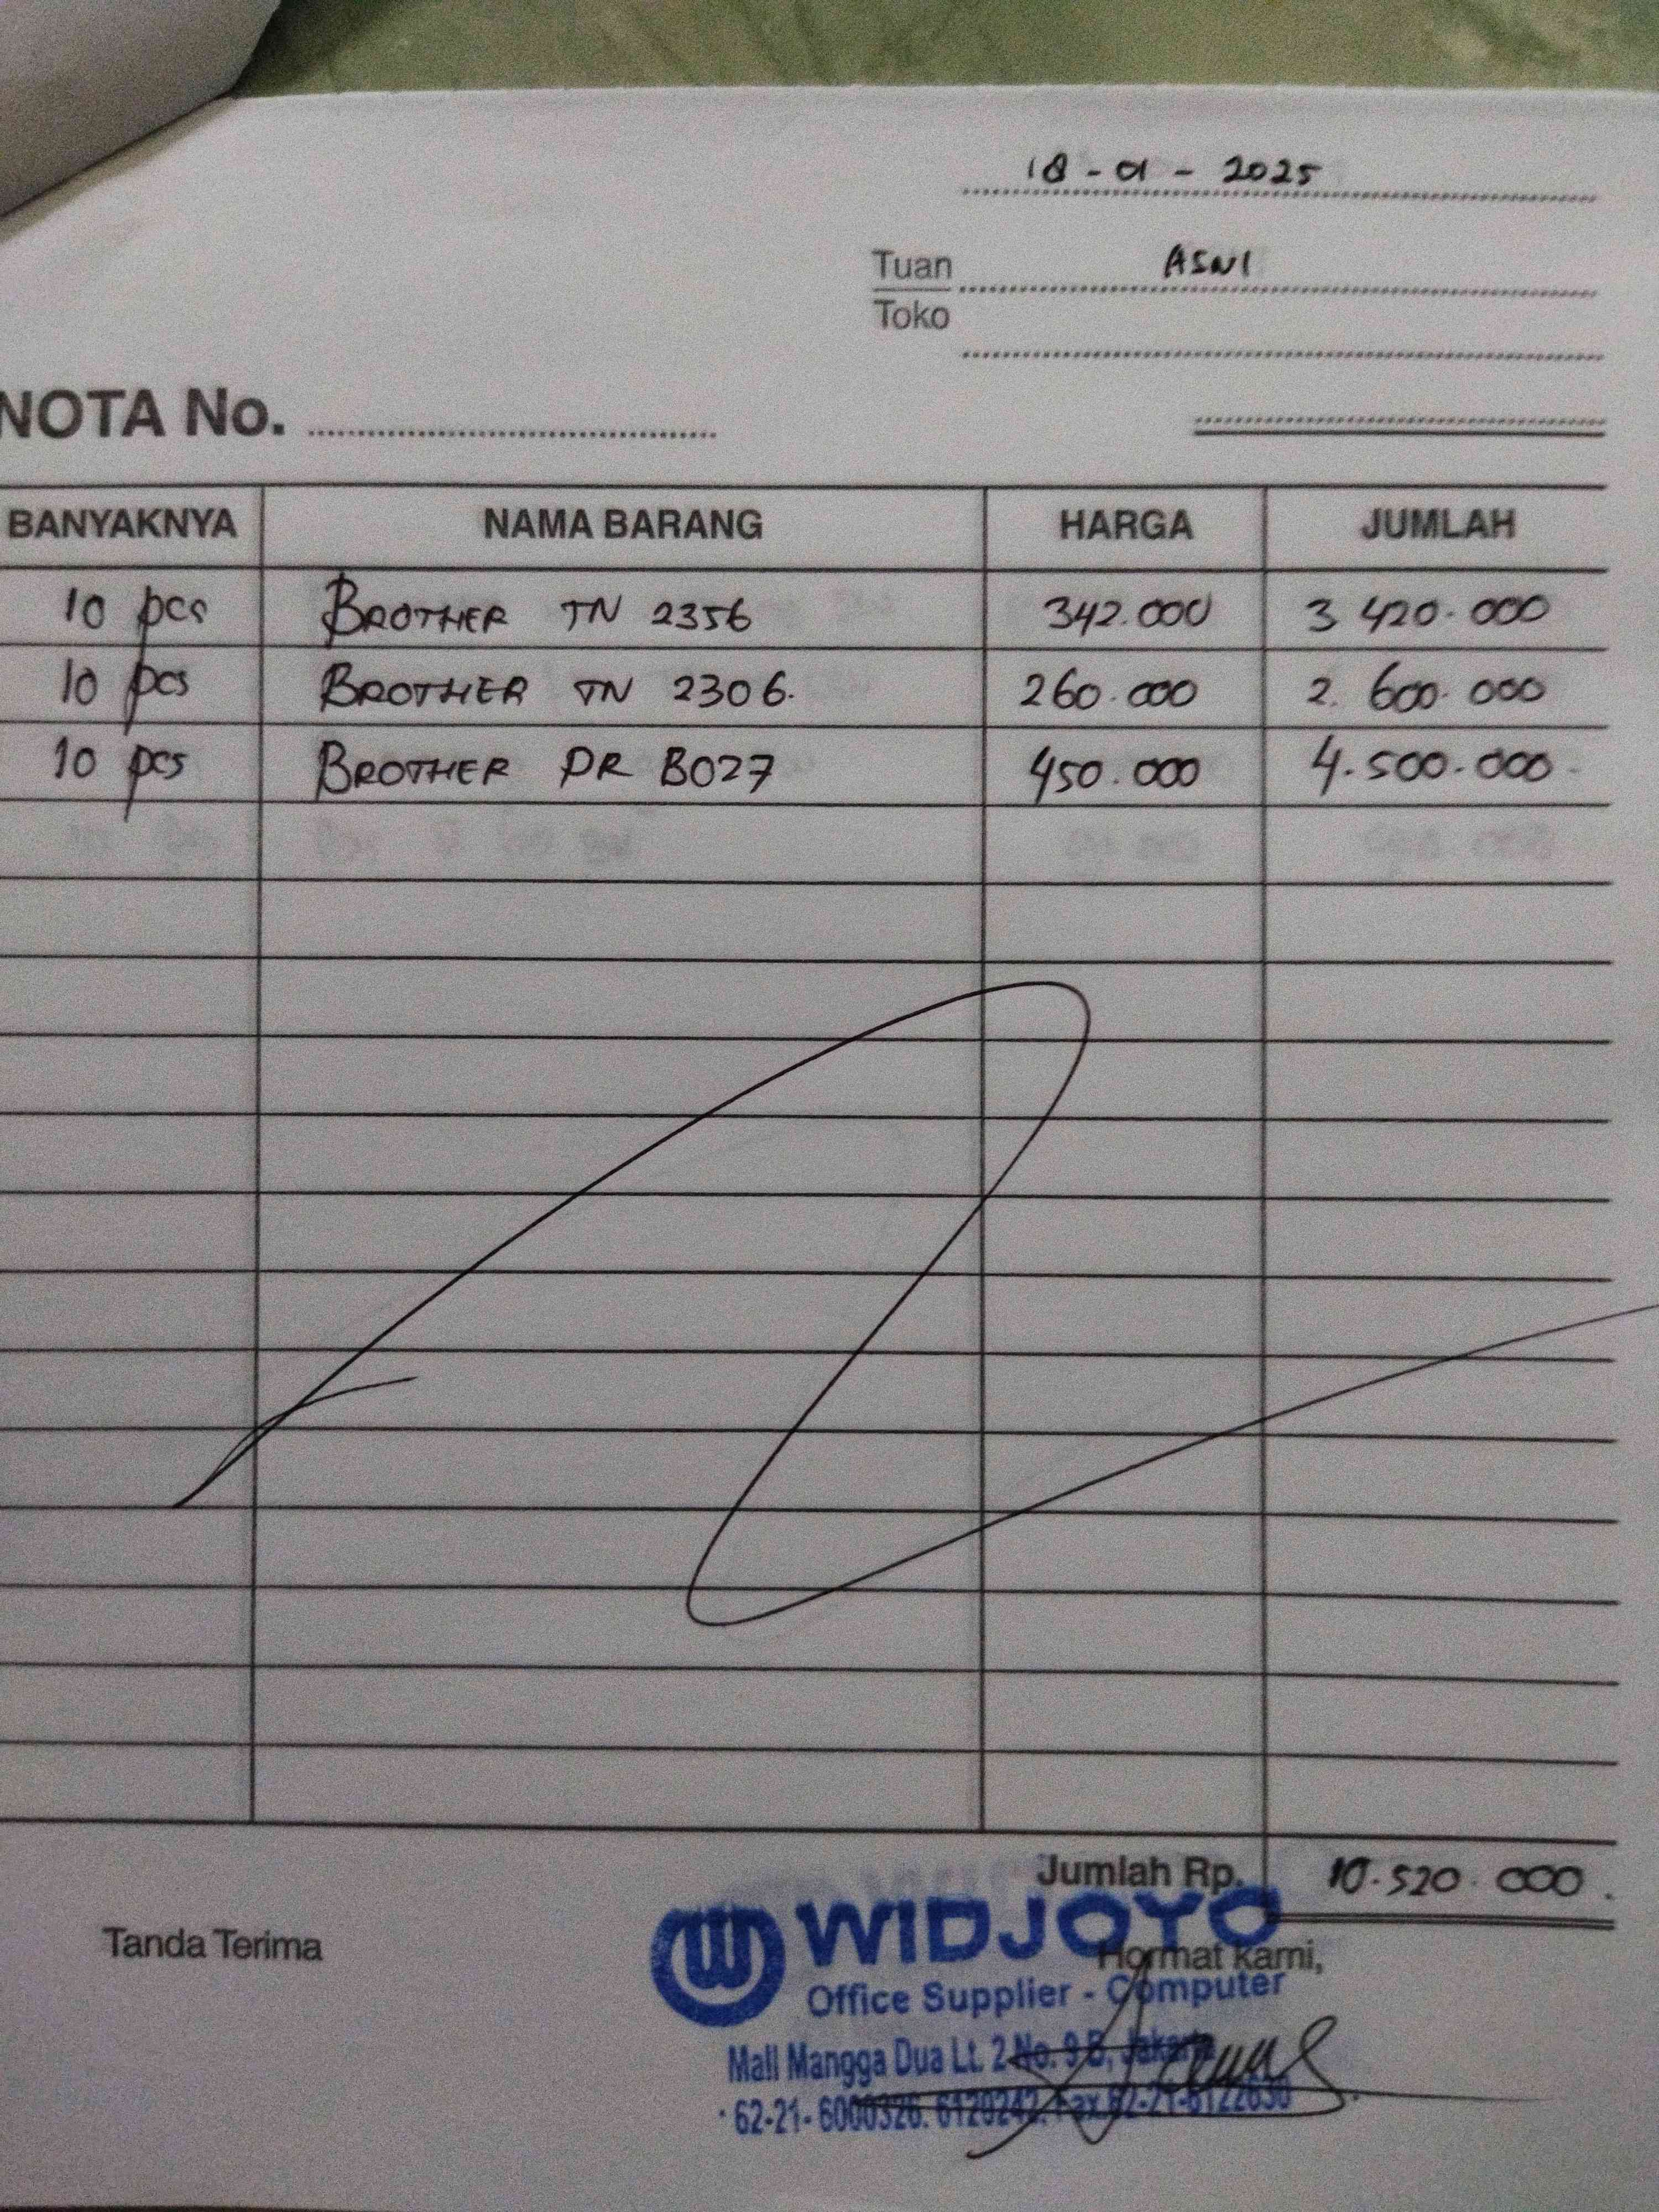 18 - 01 - 2025
Tuan ASNI
Toko
NOTA No.
BANYAKNYA NAMA BARANG HARGA JUMLAH
10 pcs BROTHER TN 2356 342.000 3 420.000
10 pcs BROTHER TN 2306. 260.000 2. 600.000
10 pcs BROTHER DR B027 450.000 4.500.000
Jumlah Rp. 10.520.000.
Tanda Terima
Hormat kami,
WIDJOYO
Office Supplier - Computer
Mall Mangga Dua Lt. 2 No. 9 B, Jakarta
62-21- 6000326. 6120242. Fax.62-21-6122630